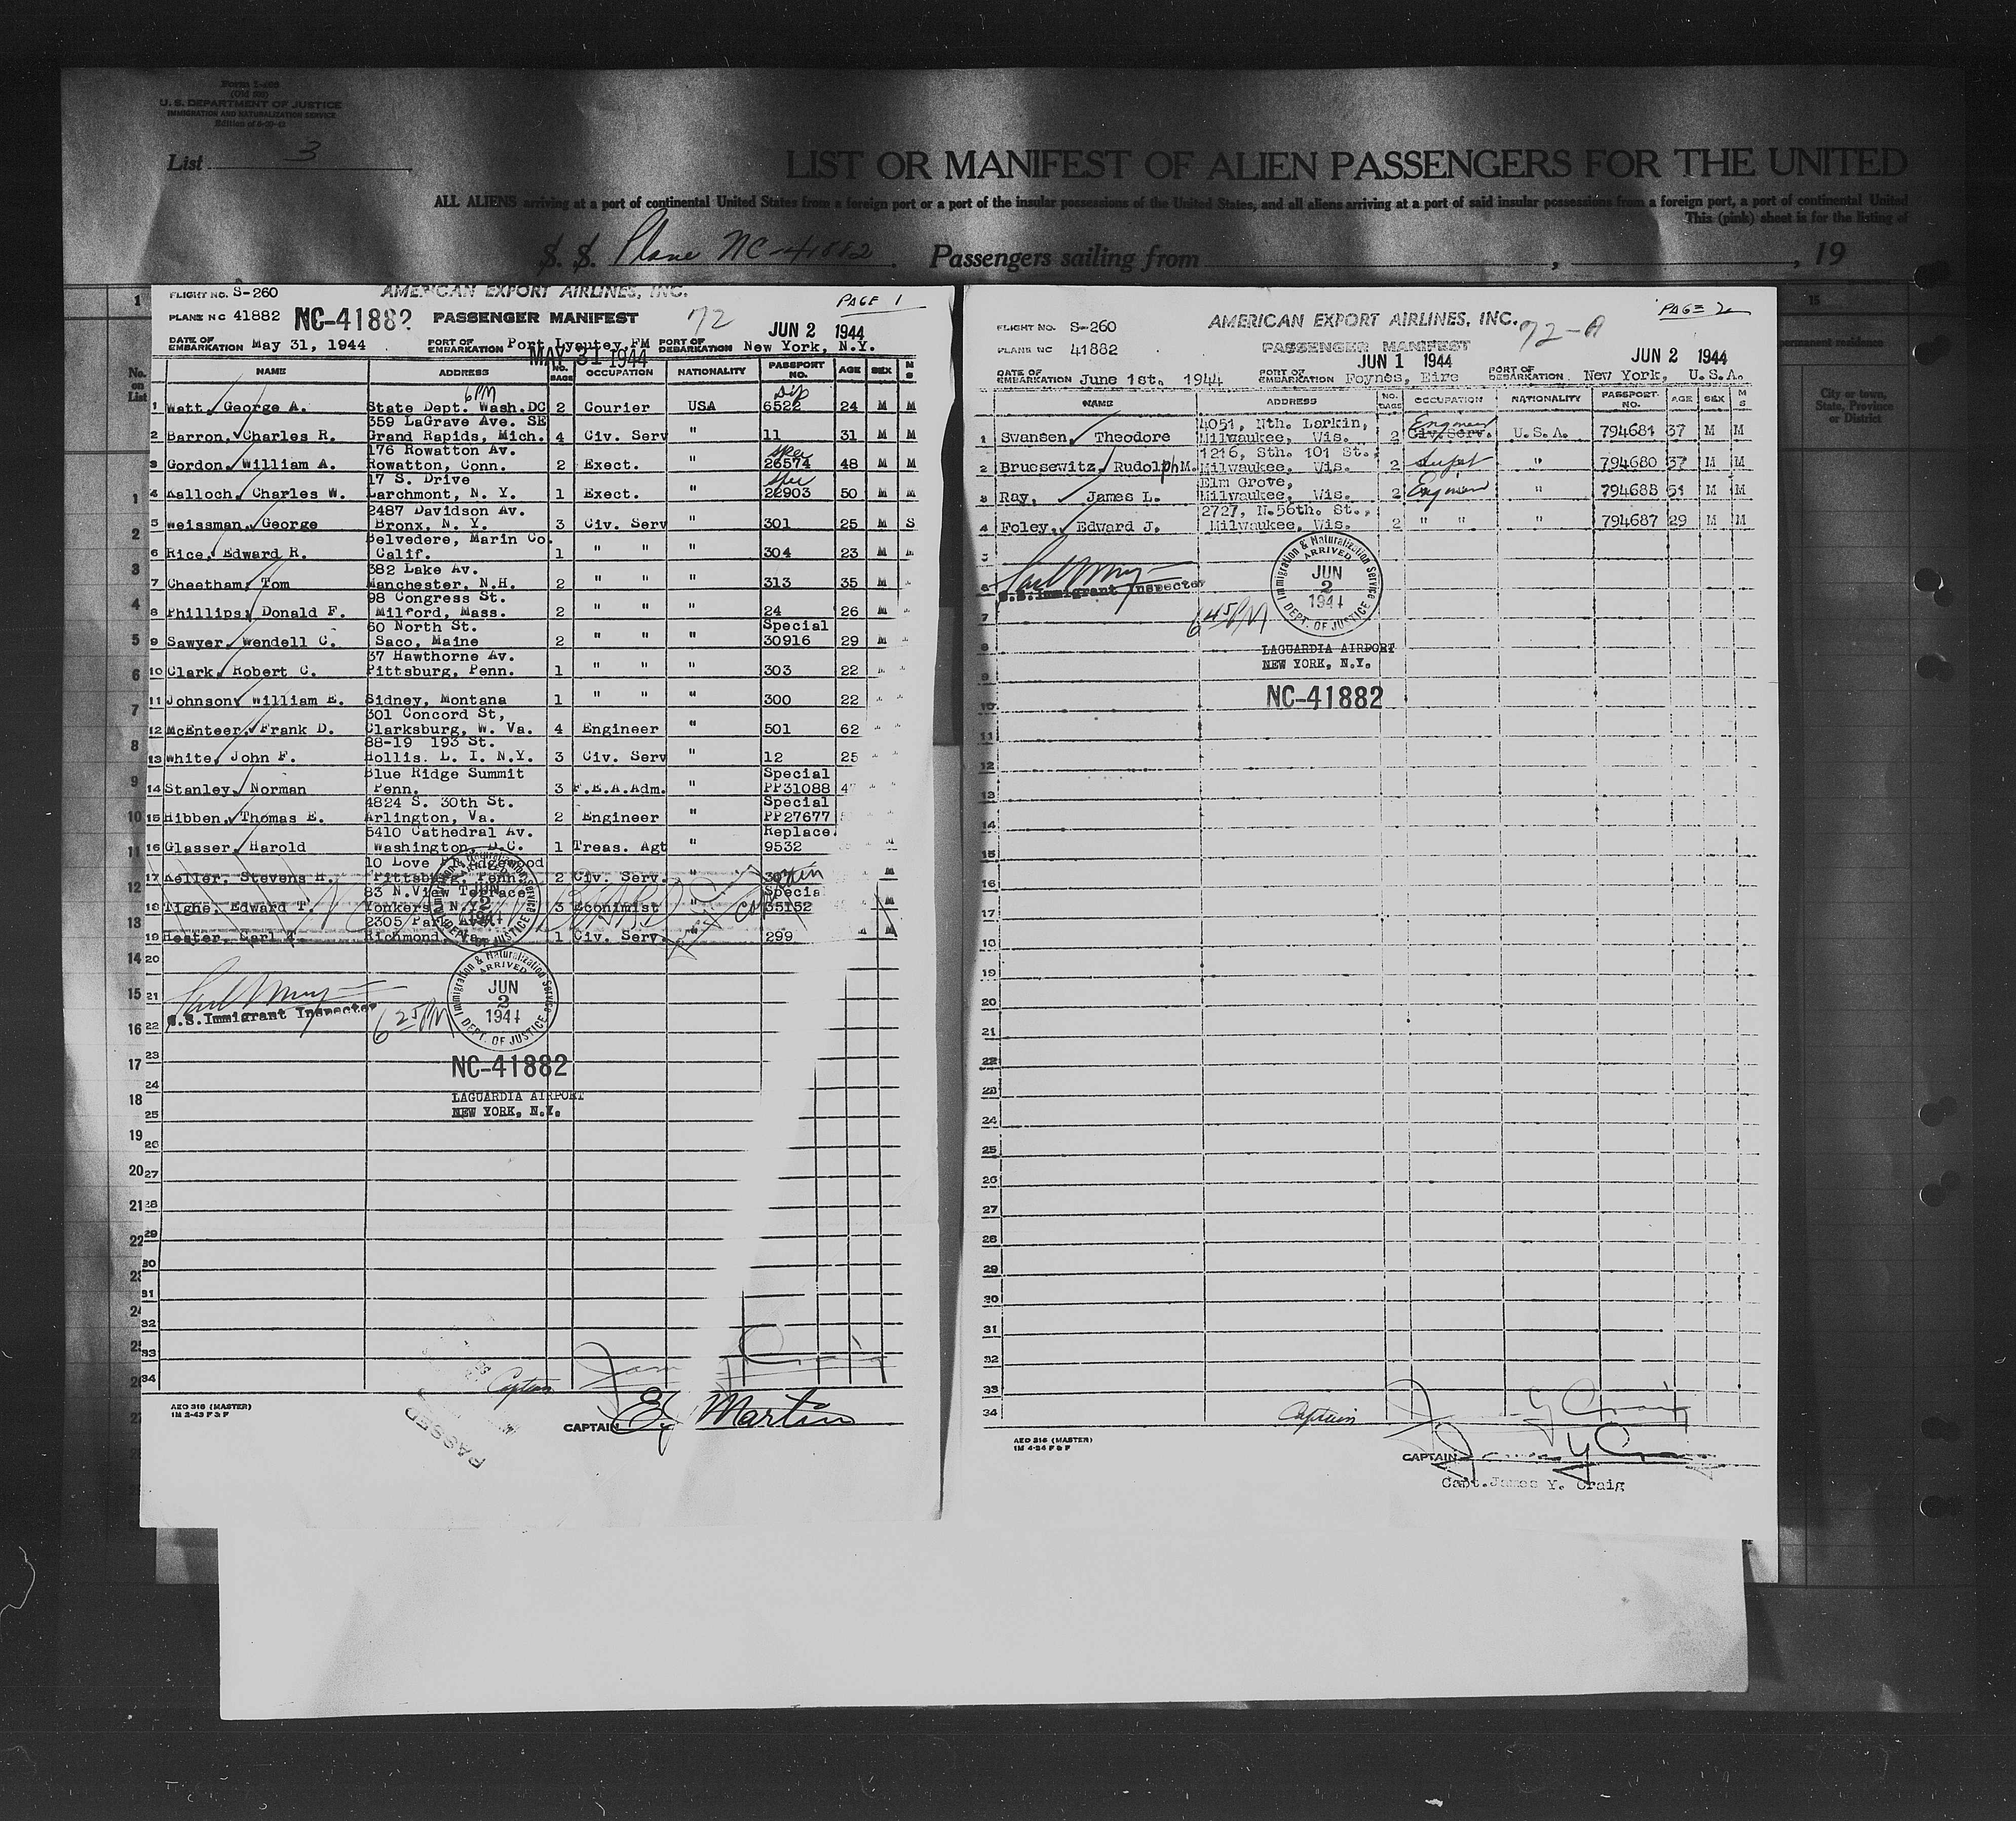 Form I-400
(Old 500)
U. S. DEPARTMENT OF JUSTICE
IMMIGRATION AND NATURALIZATION SERVICE
List 3
LIST OR MANIFEST OF ALIEN PASSENGERS FOR THE UNITED
ALL ALIENS arriving at a port of continental United States from a foreign port or a port of the insular possessions of the United States, and all aliens arriving at a port of said insular possessions from a foreign port, a port of continental United
This (pink) sheet is for the listing of
S. S. Plane NC-41882 . Passengers sailing from , , 19
FLIGHT NO. S-260 AMERICAN EXPORT AIRLINES, INC. PAGE 1
PLANE NC 41882 NC-41882 PASSENGER MANIFEST 72 JUN 2 1944
DATE OF EMBARKATION May 31, 1944 PORT OF EMBARKATION Port Lyautey, FM PORT OF DEBARKATION New York, N.Y.
MAY 31 1944
NAME ADDRESS NO. BAGS OCCUPATION NATIONALITY PASSPORT NO. AGE SEX M S
6PM Dip
1 Watt, George A. State Dept. Wash.DC 2 Courier USA 6522 24 M M
359 LaGrave Ave. SE
2 Barron, Charles R. Grand Rapids, Mich. 4 Civ. Serv " 11 31 M M
176 Rowatton Av. Spec
3 Gordon, William A. Rowatton, Conn. 2 Exect. " 26574 48 M M
17 S. Drive Spec
4 Kalloch, Charles W. Larchmont, N. Y. 1 Exect. " 22903 50 M M
2487 Davidson Av.
5 Weissman, George Bronx, N. Y. 3 Civ. Serv " 301 25 M S
Belvedere, Marin Co.
6 Rice, Edward R. Calif. 1 " " " 304 23 M
382 Lake Av.
7 Cheetham, Tom Manchester, N.H. 2 " " " 313 35 M
98 Congress St.
8 Phillips, Donald F. Milford, Mass. 2 " " " 24 26 M
60 North St. Special
9 Sawyer, Wendell C. Saco, Maine 2 " " " 30916 29 M
37 Hawthorne Av.
10 Clark, Robert C. Pittsburg, Penn. 1 " " " 303 22
11 Johnson, William E. Sidney, Montana 1 " " " 300 22
301 Concord St,
12 McEnteer, Frank D. Clarksburg, W. Va. 4 Engineer " 501 62
88-19 193 St.
13 White, John F. Hollis. L. I. N.Y. 3 Civ. Serv " 12 25
Blue Ridge Summit Special
14 Stanley, Norman Penn. 3 F.E.A.Adm. " PP31088
4824 S. 30th St. Special
15 Hibben, Thomas E. Arlington, Va. 2 Engineer " PP27677
5410 Cathedral Av. Replace.
16 Glasser, Harold Washington, D.C. 1 Treas. Agt " 9532
10 Love Ridgewood
17 Keller, Stevens H. Pittsburg, Penn. 2 Civ. Serv. " M
83 N.View Terrace Special
18 Tighe, Edward T. Yonkers N.Y. 3 Econimist " 35152 M
2305 Park Ave.
19 Hester, Earl Richmond, Va. 1 Civ. Serv. " 299 M
20
21
U.S. Immigrant Inspector 6 25 PM
22
Immigration & Naturalization Service
ARRIVED
JUN
2
1944
DEPT. OF JUSTICE
23
NC-41882
24
LAGUARDIA AIRPORT
25 NEW YORK, N.Y.
26
27
28
29
30
31
32
33
34 Captain
AEO 316 (MASTER)
1M 2-43 F & F
CAPTAIN Martin
PASSED
PAGE 2
FLIGHT NO. S-260 AMERICAN EXPORT AIRLINES, INC. 72-A
PLANE NC 41882 PASSENGER MANIFEST
JUN 1 1944 JUN 2 1944
DATE OF EMBARKATION June 1st. 1944 PORT OF EMBARKATION Foynes, Eire PORT OF DEBARKATION New York, U.S.A.
NAME ADDRESS NO. BAGS OCCUPATION NATIONALITY PASSPORT NO. AGE SEX M S
4051, Nth. Lorkin, Engineer
1 Swansen, Theodore Milwaukee, Wis. 2 Civ. Serv. U.S.A. 794681 37 M M
1216, Sth. 101 St.,
2 Bruesewitz, Rudolph M. Milwaukee, Wis. 2 Supt " 794680 37 M M
Elm Grove,
3 Ray, James L. Milwaukee, Wis. 2 Engineer " 794688 51 M M
2727, N.56th. St.,
4 Foley, Edward J. Milwaukee, Wis. 2 " " " 794687 29 M M
5
6
U.S. Immigrant Inspector
7 6 45 PM
Immigration & Naturalization Service
ARRIVED
JUN
2
1944
DEPT. OF JUSTICE
8 LAGUARDIA AIRPORT
NEW YORK, N.Y.
9
NC-41882
10
11
12
13
14
15
16
17
18
19
20
21
22
23
24
25
26
27
28
29
30
31
32
33
34 Captain
AEO 316 (MASTER)
1M 4-24 F & F
CAPTAIN James Y Craig
Capt. James Y. Craig
15
permanent residence
City or town,
State, Province
or District
No.
on
List
1
1
2
3
4
5
6
7
8
9
10
11
12
13
14
15
16
17
18
19
20
21
22